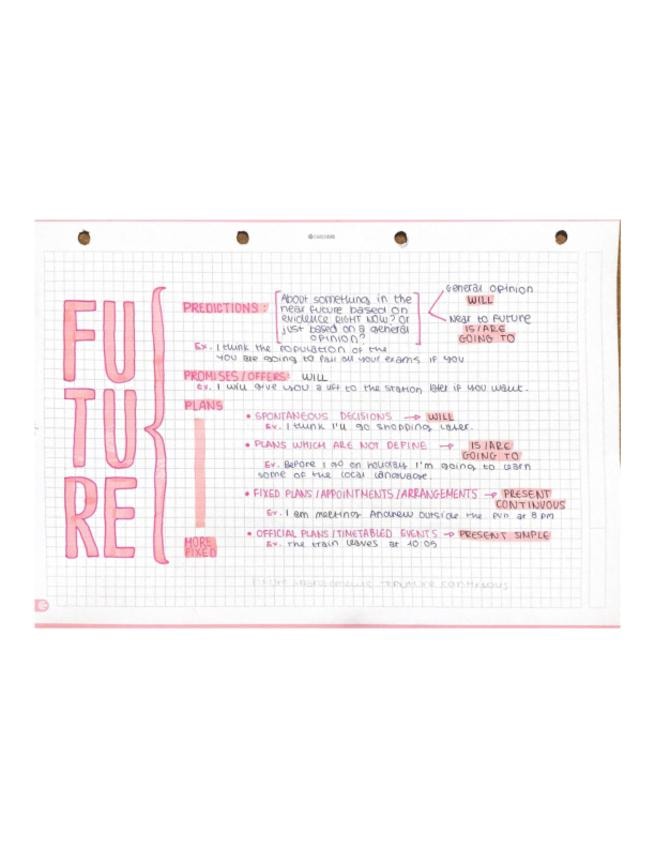 FU
TU
RE
PREDICTIONS:
About something in the
near future based on
evidence RIGHT NOW? or
just based on a general
opinion?
General Opinion
WILL
Near to Future
IS/ARE
GOING TO
Ex. I think the population of the
you are going to fail all your exams if you
PROMISES/OFFERS: WILL
Ex. I will give you a lift to the station later if you want.
PLANS
• SPONTANEOUS DECISIONS → WILL
Ex. I think I'll go shopping later.
• PLANS WHICH ARE NOT DEFINE → IS/ARE
GOING TO
Ex. Before I go on holidays I'm going to learn
some of the local language.
• FIXED PLANS/APPOINTMENTS/ARRANGEMENTS → PRESENT
CONTINUOUS
Ex. I am meeting Andrew outside the pub at 8 pm
• OFFICIAL PLANS/TIMETABLED EVENTS → PRESENT SIMPLE
Ex. The train leaves at 10:05
MORE
FIXED
continuous